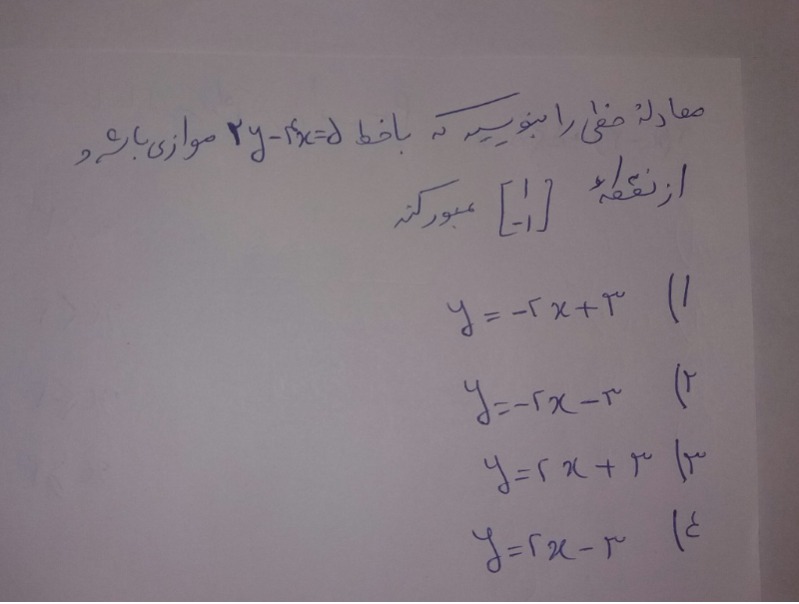 معادلهٔ خطی را بنویسید که با خط ۲y-۴x=۵ موازی باشد و
از نقطهٔ [۱ -۱] عبور کند
۱) y=-۲x+۳
۲) y=-۲x-۳
۳) y=۲x+۳
۴) y=۲x-۳